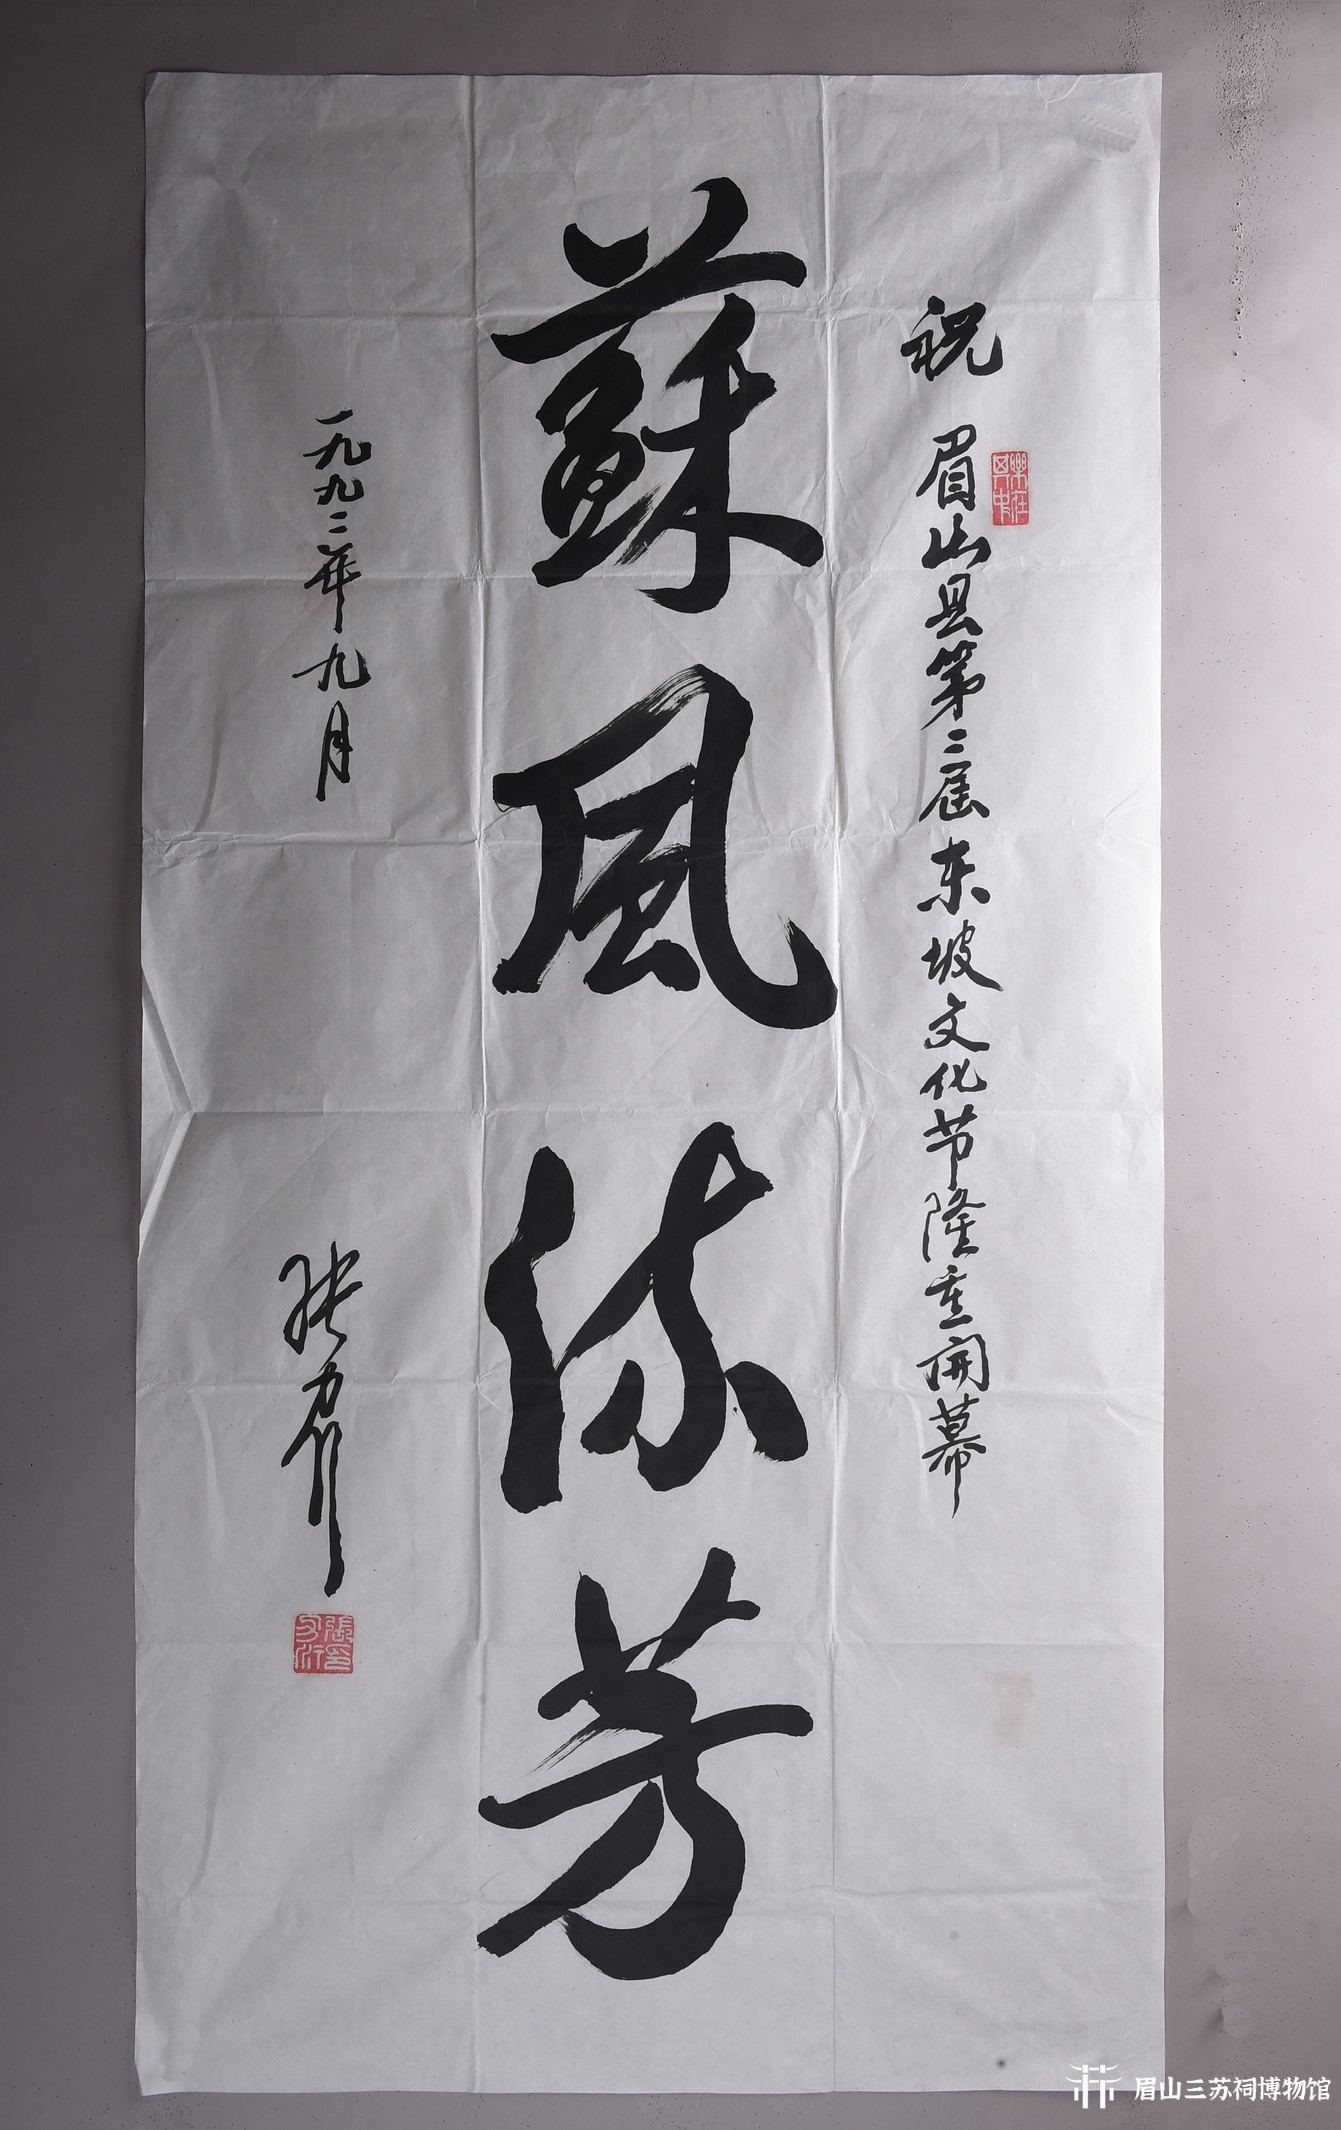 祝 眉山县第二届东坡文化节隆重開幕
樂在其中
蘇風流芳
一九九二年九月
张力行
張印力行
眉山三苏祠博物馆